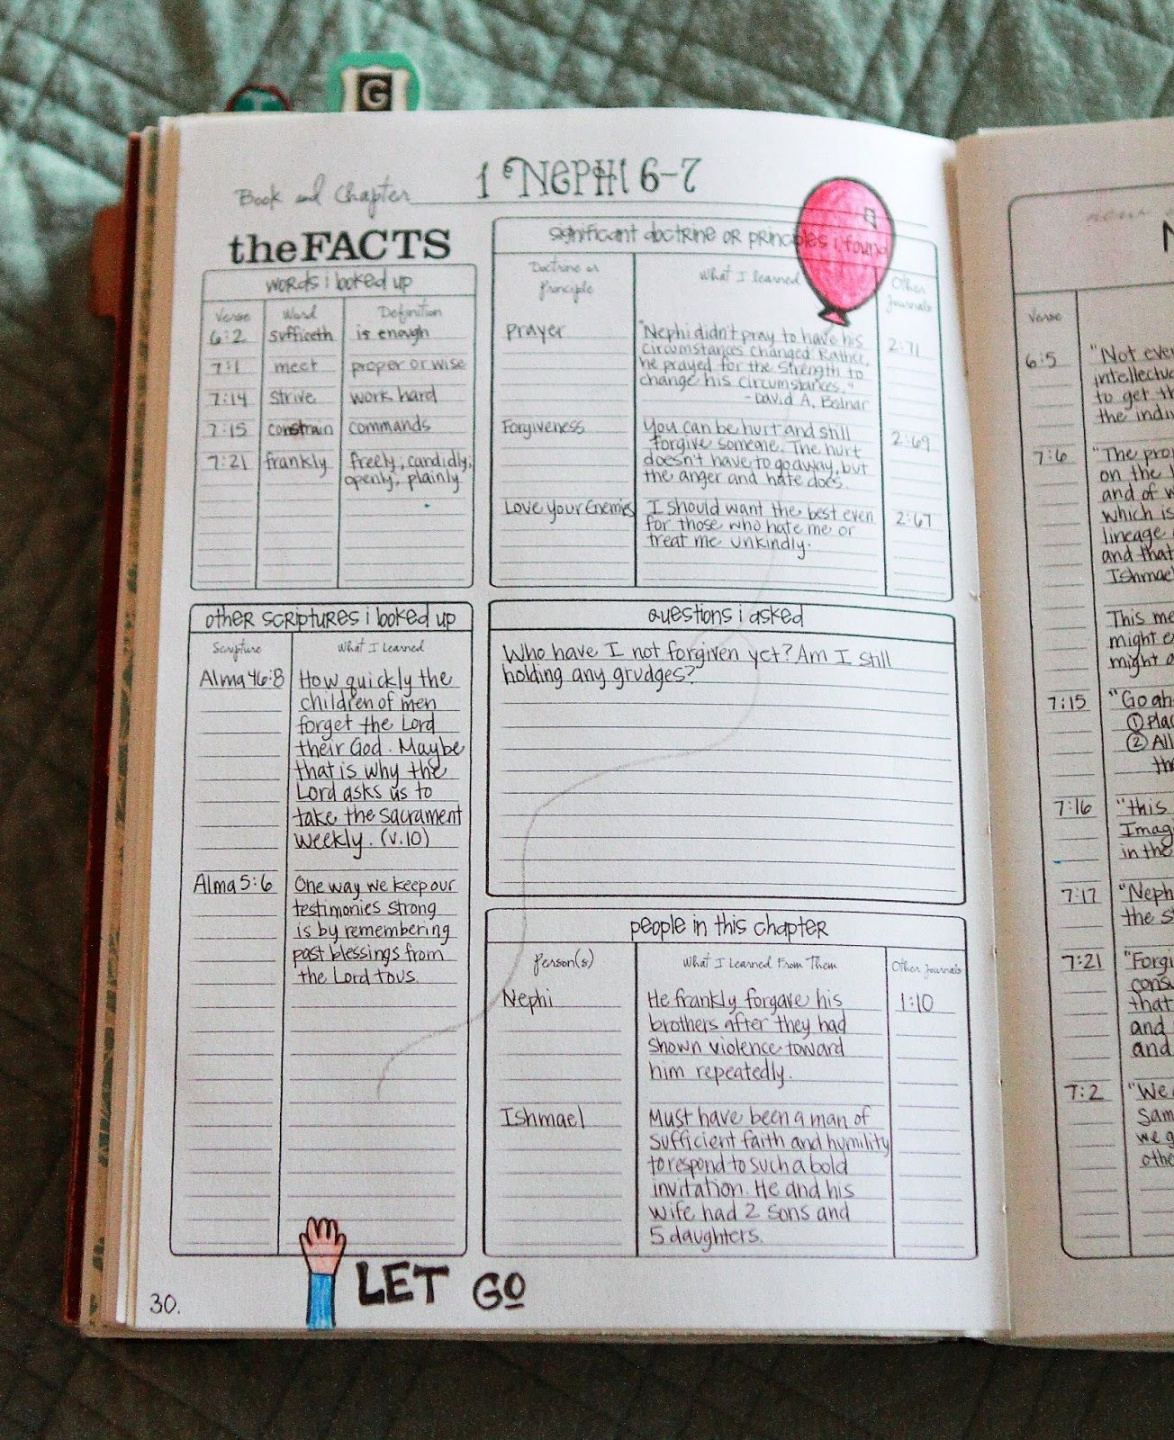 G
Book and Chapter 1 Nephi 6-7
the FACTS
words i looked up
Verse Word Definition
6:2 sufficeth is enough
7:1 meet proper or wise
7:14 strive work hard
7:15 constrain commands
7:21 frankly freely, candidly,
openly, plainly
significant doctrine or principles i found
Doctrine or
Principle
What I learned
Other
Journals
Prayer
"Nephi didn't pray to have his
circumstances changed. Rather,
he prayed for the strength to
change his circumstances."
- David A. Bednar
2:71
Forgiveness
You can be hurt and still
forgive someone. The hurt
doesn't have to go away, but
the anger and hate does.
2:69
Love Your Enemies
I should want the best even
for those who hate me or
treat me unkindly.
2:67
other scriptures i looked up
Scripture What I Learned
Alma 46:8
How quickly the
children of men
forget the Lord
their God. Maybe
that is why the
Lord asks us to
take the sacrament
weekly. (v.10)
Alma 5:6
One way we keep our
testimonies strong
is by remembering
past blessings from
the Lord to us.
questions i asked
Who have I not forgiven yet? Am I still
holding any grudges?
people in this chapter
Person(s) What I Learned From Them Other Journals
Nephi
He frankly forgave his
brothers after they had
shown violence toward
him repeatedly.
1:10
Ishmael
Must have been a man of
sufficient faith and humility
to respond to such a bold
invitation. He and his
wife had 2 sons and
5 daughters.
LET GO
30.
Verse
6:5
"Not eve
intellectu
to get th
the indi
7:6
"The pro
on the
and of w
which is
lineage
and that
Ishmae
This me
might e
might a
7:15
"Go ah
① Pla
② All
th
7:16
"this
Imag
in the
7:17
"Neph
the s
7:21
"Forgi
consu
that
and
and
7:2
"We
Sam
we g
othe